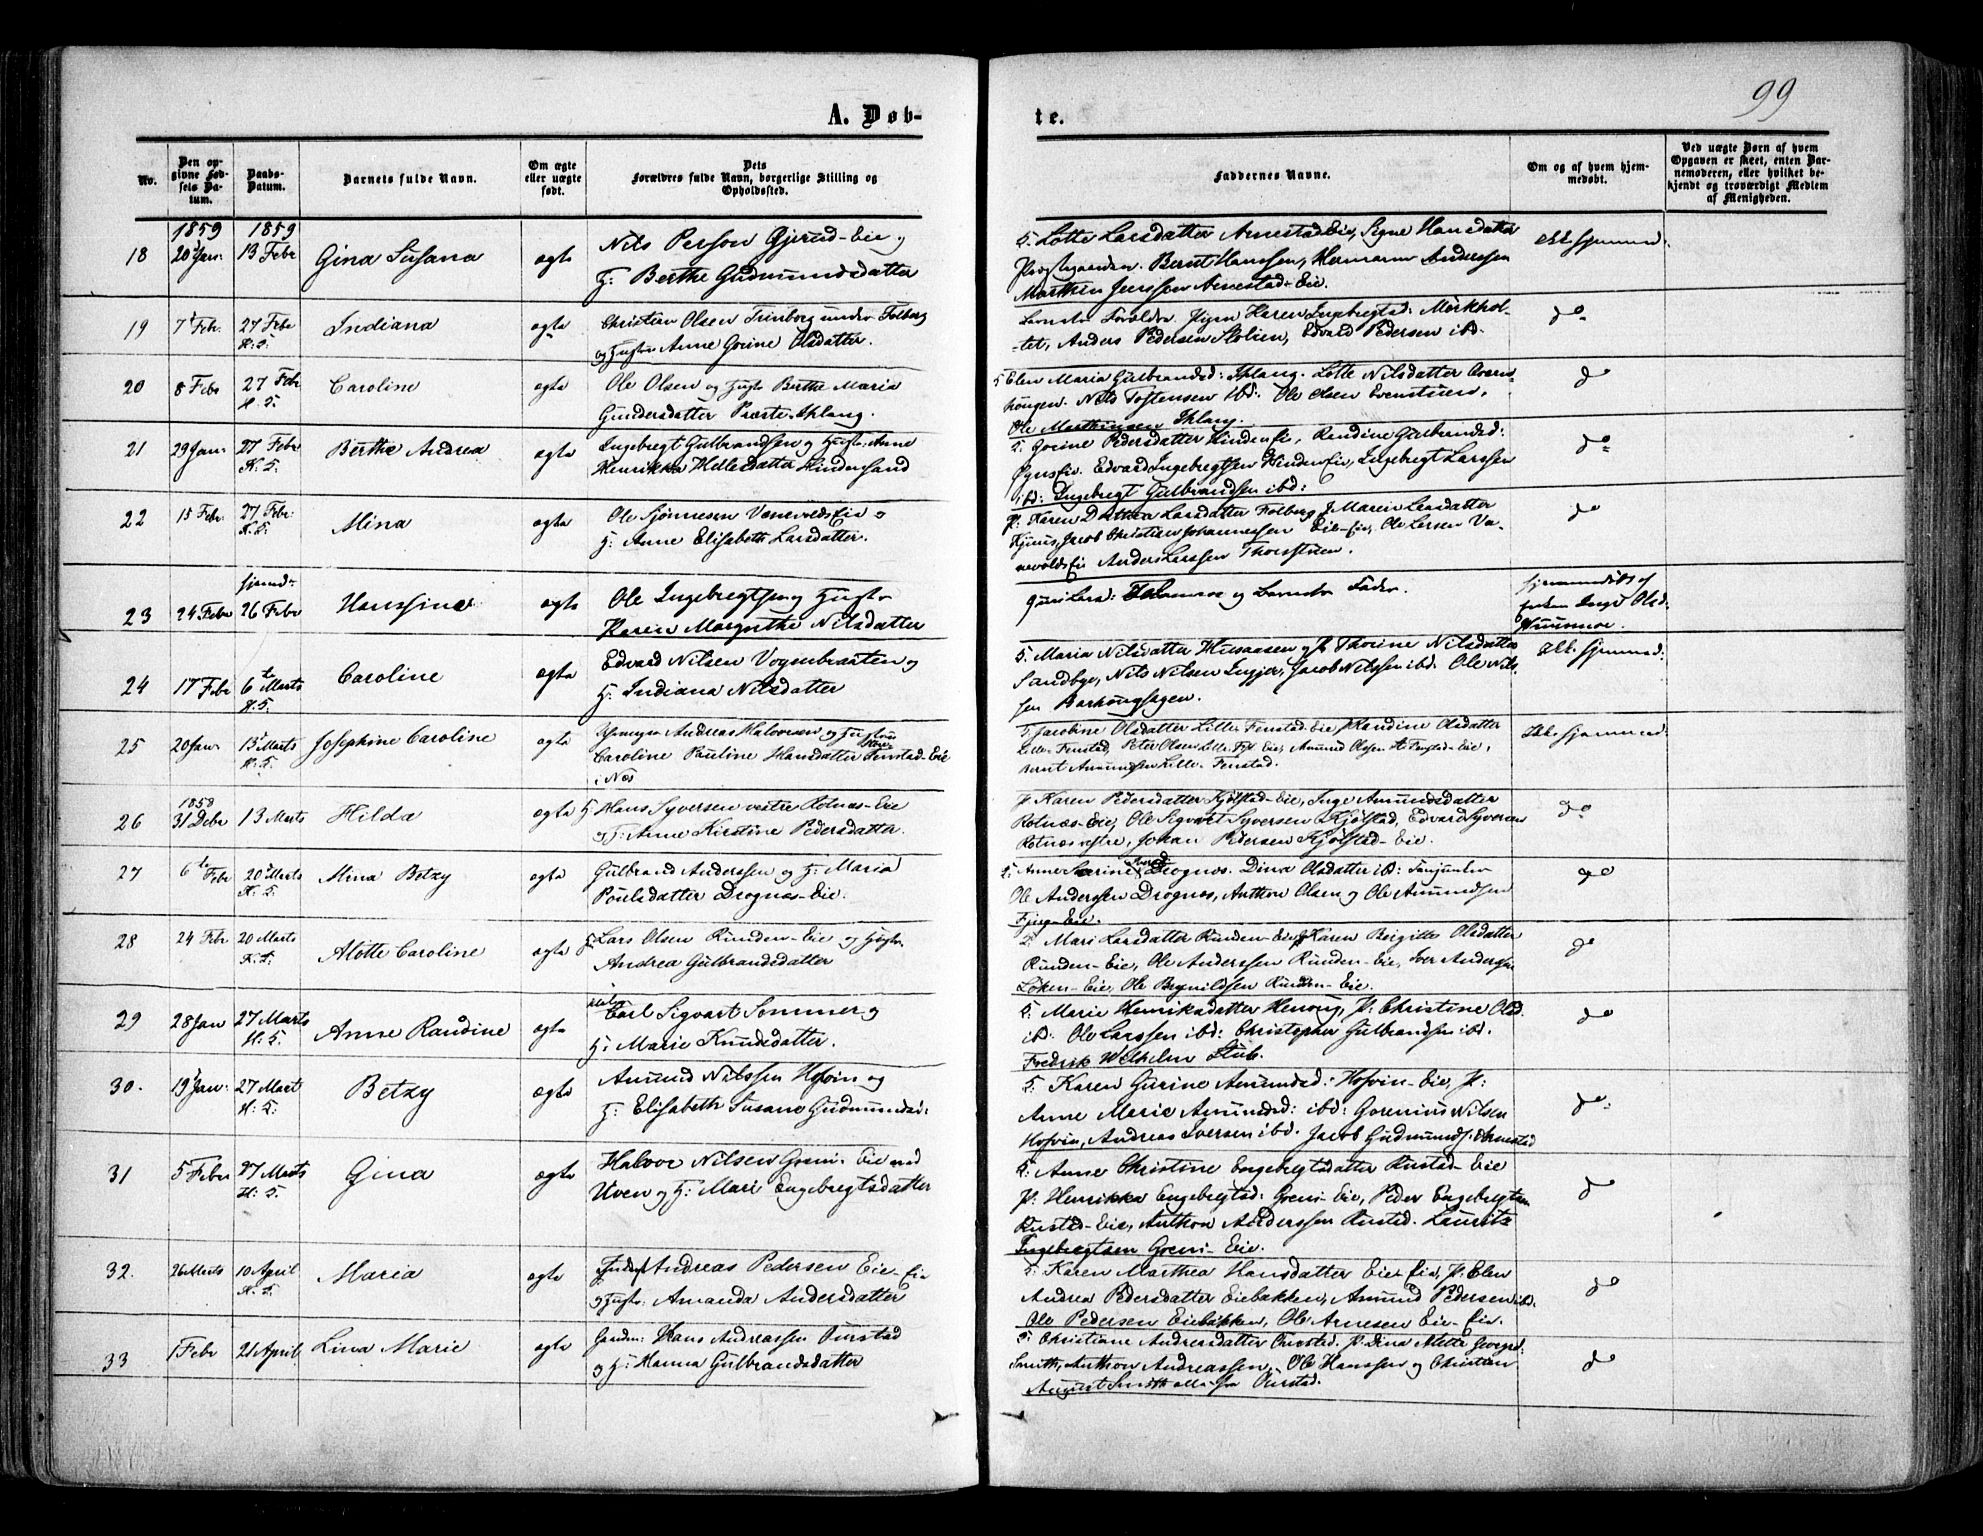 99
A. Døb-
te.
No.
Den op-
givne Fød-
sels Da-
tum.
Daabs-
Datum.
Barnets fulde Navn.
Om ægte
eller uægte
født.
Dets
Forældres fulde Navn, borgerlige Stilling og
Opholdssted.
Faddernes Navne.
Om og af hvem hjem-
medøbt.
Ved uægte Børn af hvem
Opgaven er skeet, enten Bar-
nemoderen, eller hvilket be-
kjendt og troværdigt Medlem
af Menigheden.
1859 1859
18 20 Jan: 13 Febr Gina Susana ægte Nils Person Gjerud-Eie og
H: Berthe Gudmundsdatter
F: Lotte Larsdatter Arnestad Eie, Signe Hansdatter
Præstegaarden. Bernt Hanssen, Hermann Anderssen
Marthin Jenssen Arnestad-Eie.
ikke hjemmed:
19 7 Feb. 27 Febr Indiana ægte Christian Olsen Trinborg under Folberg
H.T. og Hustro Anne Gorine Olsdatter.
Barnets Forældre. Pigen Karen Ingebregtsd: Mørkhol-
-tet, Anders Pedersen Stolien, Edvard Pedersen ibd.
do
20 8 Febr 27 Febr Caroline ægte Ole Olsen og Husto Berthe Maria
H.T. Gundersdatter Præste
F Elen Maria Gulbrandsd: Lotte Nilsdatter
Nils Tostensen ibd: Ole Olsen Evenstuen,
Ole Marthinsen
do
21 29 Jan: 27 Febr Berthe Andrea ægte Ingebregt Gulbrandsen og Husto: Anne
H.T. Henrikka Hellesdatter Hindensand
F: Gorine Pedersdatter Hinden Ei, Randine Gulbrandsd:
Edvard Ingebregtsen Hinden Eie, Ingebregt Larssen
ibd: Ingebregt Gulbrandsen ibd:
do
22 15 Febr. 27 Febr. Mina ægte Ole Sjønnesen Vanevolds Eie og
H.T. H: Anne Elisabeth Larsdatter.
P: Karen Dorthea Larsdatter Folberg, J Maren Larsdatter
Jacob Christian Johannessen Eie-Eie, Ole Larsen Va-
nevolds Eie Anders Larssen Thorsstuen.
do
hjemd:
23 24 Febr 26 Febr Hanssine ægte Ole Ingebregtsen og Husto
Karen Margrethe Nilsdatter
og Barnets Fader.
hjemmedøbt af
Inge Olsd.
24 17 Febr 6te Marts Caroline ægte Edvard Nilsen Vognbraaten og
H.T. H: Indiana Nilsdatter
F. Maria Nilsdatter og P Thorine Nilsdatter
Sandbye, Nils Nilsen Jacob Nilssen ibd. Ole Nils-
sen
Ikke hjemmed:
25 20 Jan 13 Marts Josephine Caroline ægte Andreas Halvorsen og Hustro
H.T. Caroline Pauline Hansdatter Fenstad-Eie
i Næs
F Jacobine Olsdatter Lille Fenstad-Eie, P Randine Olsdatter
Lille-Fenstad, Peter Olsen Lille Eie, Amund Olsen St. Fenstad-Eie,
Bernt Amundsen Lille-Fenstad.
Ikke hjemmed:
1858
26 31 Debr 13 Marts Hilda ægte H: Hans Syversen vestre Rotnæs-Eie
og H: Anne Kirstine Pedersdatter.
P Karen Pedersdatter Kjølstad-Eie, Inge Amundsdatter
Rotnæs-Eie, Ole Sigvart Syversen Kjølstad, Edvard Syversen
Rotnæs vestre, Johan Pedersen Kjølstad-Eie.
do
27 6te Febr 20 Marts Mina Betzy ægte Gulbrand Anderssen og H: Maria
H.T. Poulsdatter Drognæs-Eie.
F: Anne Drognæs. Dina Olsdatter ibd:
Ole Anderssen Drognæs, Anthon Olsen og Ole Amundsen
Fjing-Eie.
do
28 24 Febr 20 Marts Mette Caroline ægte Lars Olsen Runden-Eie og Husto
H.T. Andrea Gulbrandsdatter
F: Mari Larsdatter Runden-Eie, P Karen Birgitte Olsdatter
Runden-Eie, Ole Anderssen Runden-Eie, Iver Anderssen
Løken-Eie, Ole Brynildsen Runden-Eie.
do
29 28 Jan 27 Marts Anne Randine ægte Carl Sigvart Sommer og
H.T. H: Marie Knudsdatter.
F: Marie Henriksdatter Henoug, P: Christine Olsd.
ibd. Ole Larssen ibd: Christopher Gulbrandsen ibd.
Fredrik Wilhelm Stub.
do
30. 19 Jan: 27 Marts Betzy ægte Amund Nilssen Hofvin og
H.T. H: Elisabeth Susane Gudmundsd:
F: Karen Gurine Amundsd: Hofvin-Eie, P:
Anne Marie Amundsd: ibd: Gorenius Nilsen
Hofvin, Andreas Iversen ibd. Jacob Gudmunds: Arnestad
do
31 5 Febr 27 Marts Gina ægte Halvor Nilsen Greni-Eie ved
H.T. Uven og H: Mari Engebregtsdatter
F: Anne Christine Engebregtsdatter Rustad-Eie
P: Henrikka Engebregtsd: Greni-Eie, Peder Engebregtsen
Rustad-Eie, Anthon Anderssen Rustad. Lauritz
Ingebregtsen Greni-Eie.
do
32. 26 Marts 10 April Maria ægte Inderst Andreas Pedersen Eie-Eie
H.T. og Husto: Amanda Andersdatter
F: Karen Marthea Hansdatter Eie-Eie, P: Elen
Andrea Pedersdatter Eiebakken, Amund Pedersen ibd.
Ole Pedersen Eiebakken, Ole Arnesen Eie-Eie.
do
33 1 Febr 21 April Lina Marie ægte Gaardm: Hans Andreassen Ourstad
og H: Hanna Gulbrandsdatter
F: Christiane Andreasdatter Ourstad. P: Dina Mette Georgsd.
Smith, Anthon Andreassen, Ole Hanssen og Christian
August Smith alle fra Ourstad.
do